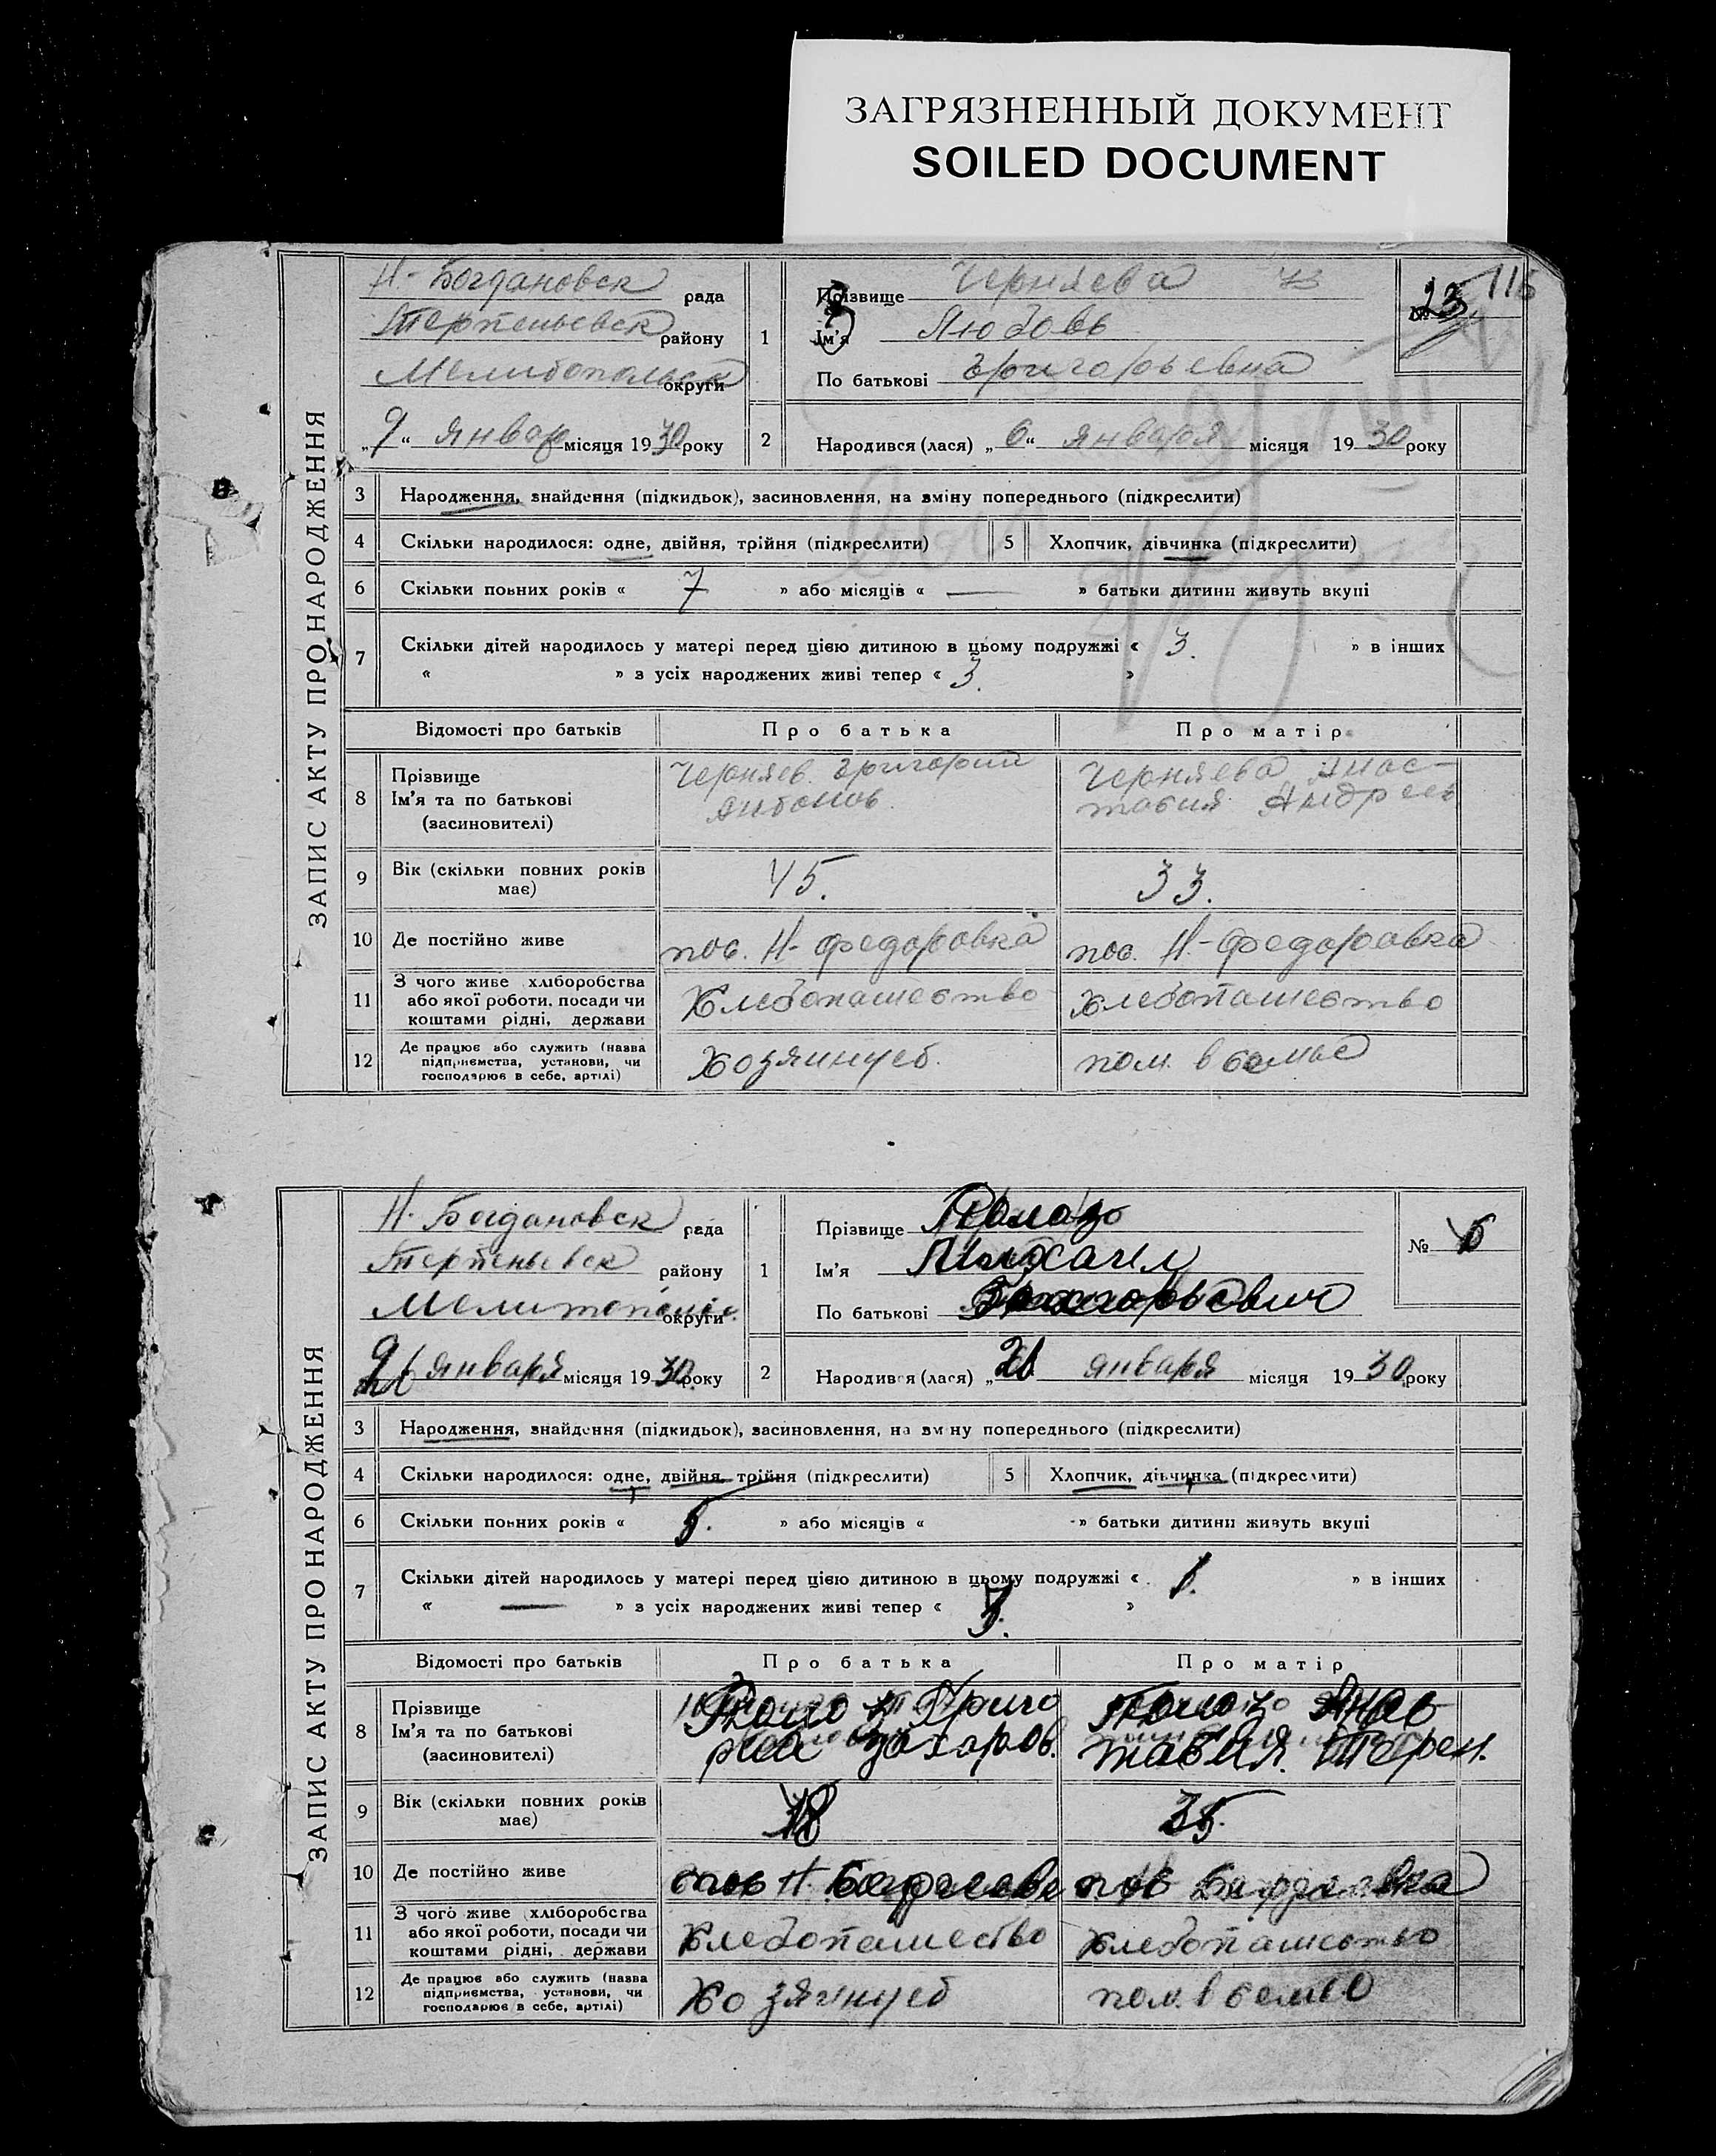 ЗАГРЯЗНЕННЫЙ ДОКУМЕНТ
SOILED DOCUMENT
116
ЗАПИС АКТУ ПРО НАРОДЖЕННЯ
Н-Богдановск рада
Терпеньевск району
Мелитопольск округи
„9“ январ місяця 1930 року
1 Прізвище Черняева
Ім'я Любовь
По батькові Григорьевна
№ 23
2 Народився (лася) „6“ января місяця 1930 року
3 Народження, знайдення (підкидьок), засиновлення, на зміну попереднього (підкреслити)
4 Скільки народилося: одне, двійня, трійня (підкреслити) 5 Хлопчик, дівчинка (підкреслити)
6 Скільки повних років « 7 » або місяців « — » батьки дитини живуть вкупі
7 Скільки дітей народилось у матері перед цією дитиною в цьому подружжі « 3. » в інших
« » з усіх народжених живі тепер « 3. »
Відомості про батьків Про батька Про матір
8 Прізвище Ім'я та по батькові (засиновителі)
Черняев Григорий
Антонов
Черняева Анас-
тасия Андреев
9 Вік (скільки повних років має) 45. 33.
10 Де постійно живе пос. Н-Федоровка пос. Н-Федоровка
11 З чого живе хліборобства
або якої роботи, посади чи
коштами рідні, держави
Хлебопашество Хлебопашество
12 Де працює або служить (назва
підприємства, установи, чи
господарює в себе, артілі)
Хозяинует. пом. в семье
ЗАПИС АКТУ ПРО НАРОДЖЕННЯ
Н. Богдановск рада
Терпеньевск району
округи
января місяця 1930 року
1 Прізвище
Ім'я Михаил
По батькові Григорьевич
№
2 Народився (лася) „ января місяця 1930 року
3 Народження, знайдення (підкидьок), засиновлення, на зміну попереднього (підкреслити)
4 Скільки народилося: одне, двійня, трійня (підкреслити) 5 Хлопчик, дівчинка (підкреслити)
6 Скільки повних років « 5. » або місяців « » батьки дитини живуть вкупі
7 Скільки дітей народилось у матері перед цією дитиною в цьому подружжі « 1. » в інших
« — » з усіх народжених живі тепер « »
Відомості про батьків Про батька Про матір
8 Прізвище Ім'я та по батькові (засиновителі)
Григо
рий Захаров.
Анас
тасия. Терен.
9 Вік (скільки повних років має)
10 Де постійно живе пос Н. пос
11 З чого живе хліборобства
або якої роботи, посади чи
коштами рідні, держави
Хлебопашество Хлебопашество
12 Де працює або служить (назва
підприємства, установи, чи
господарює в себе, артілі)
Хозяинует пом. в семье